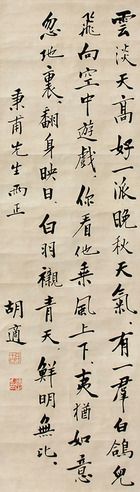 雲淡天高、好一派晚秋天氣、有一群白鴿兒
飛向空中遊戲、你看他乘風上下、夷猶如意、
忽地裏、翻身映日、白羽襯青天、鮮明無比、
秉甫先生兩正
胡適